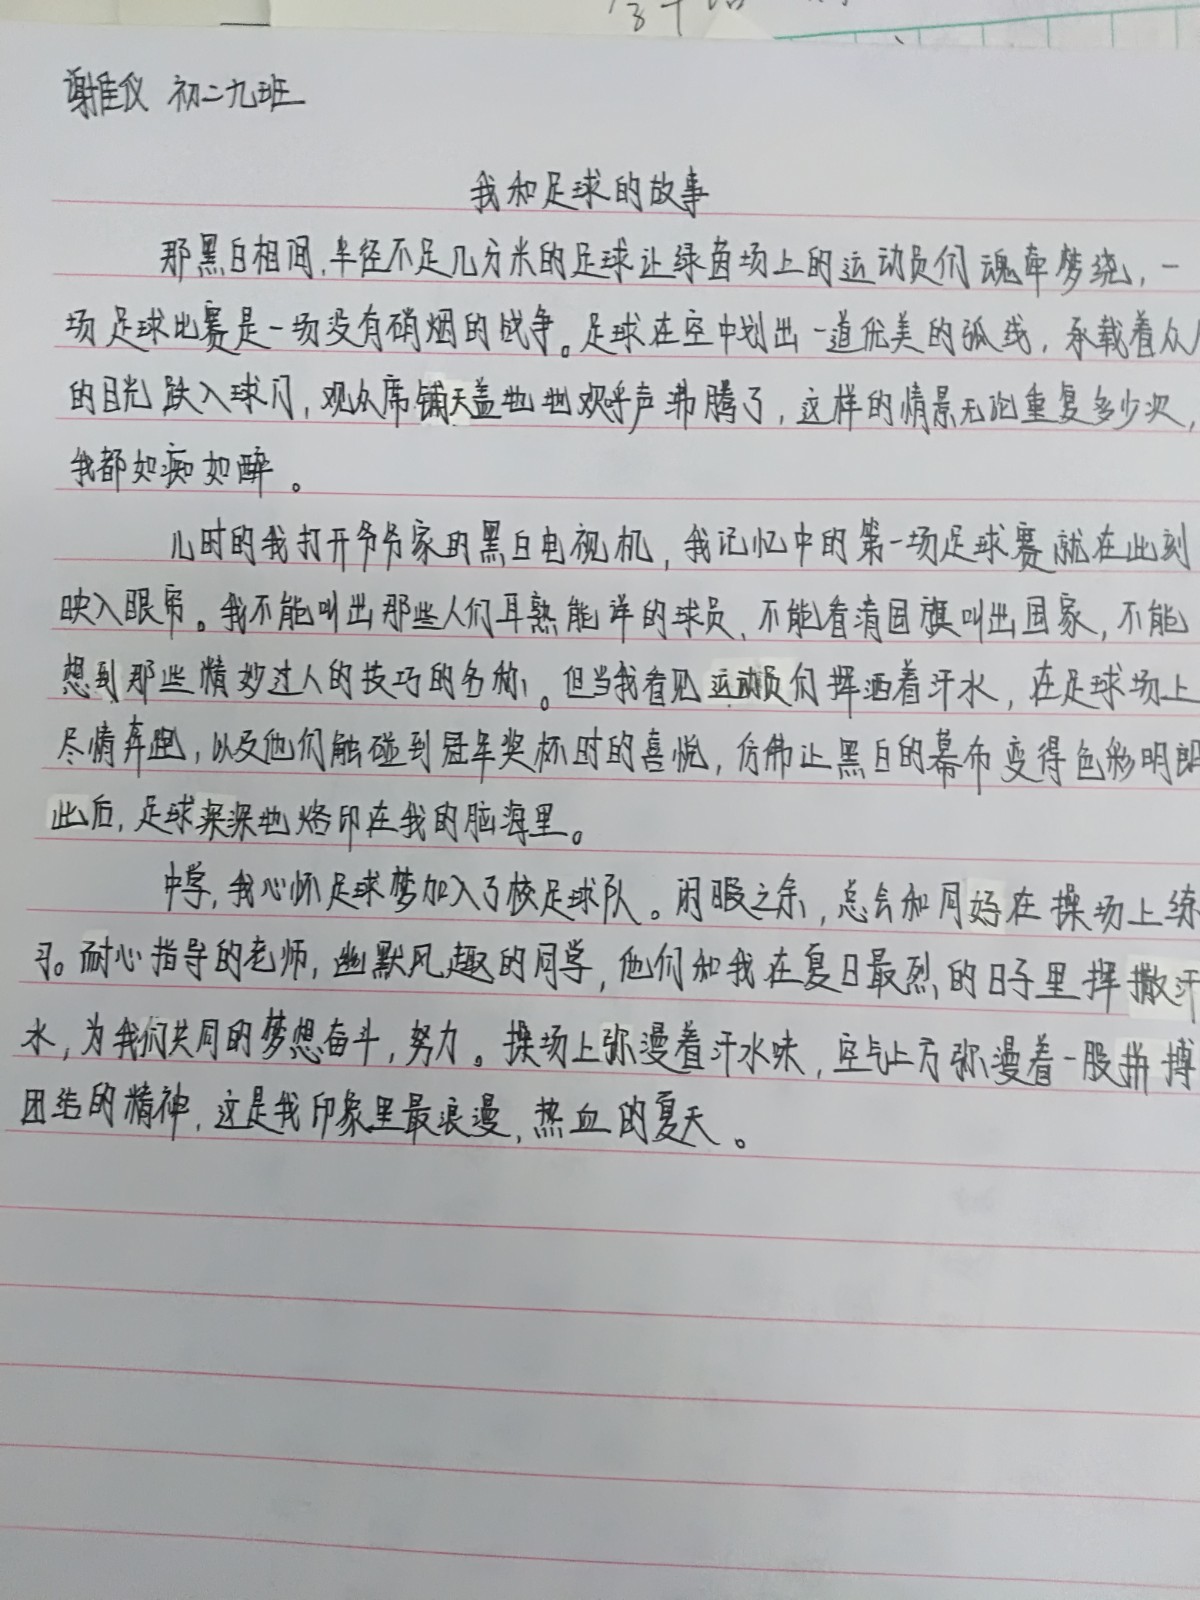 谢佳仪 初二九班
我和足球的故事
那黑白相间,半径不足几分米的足球让绿茵场上的运动员们魂牵梦绕,一
场足球比赛是一场没有硝烟的战争。足球在空中划出一道优美的弧线,承载着众人
的目光跌入球门,观众席铺天盖地地欢呼声沸腾了,这样的情景无论重复多少次,
我都如痴如醉。
儿时的我打开爷爷家的黑白电视机,我记忆中的第一场足球赛就在此刻
映入眼帘。我不能叫出那些人们耳熟能详的球员,不能看清国旗叫出国家,不能
想到那些精妙过人的技巧的名称。但当我看见运动员们挥洒着汗水,在足球场上
尽情奔跑,以及他们触碰到冠军奖杯时的喜悦,仿佛让黑白的幕布变得色彩明朗
此后,足球深深地烙印在我的脑海里。
中学,我心怀足球梦加入了校足球队。闲暇之余,总会和同好在操场上练
习。耐心指导的老师,幽默风趣的同学,他们和我在夏日最烈的日子里挥撒汗
水,为我们共同的梦想奋斗,努力。操场上弥漫着汗水味,空气上方弥漫着一股拼搏
团结的精神,这是我印象里最浪漫,热血的夏天。